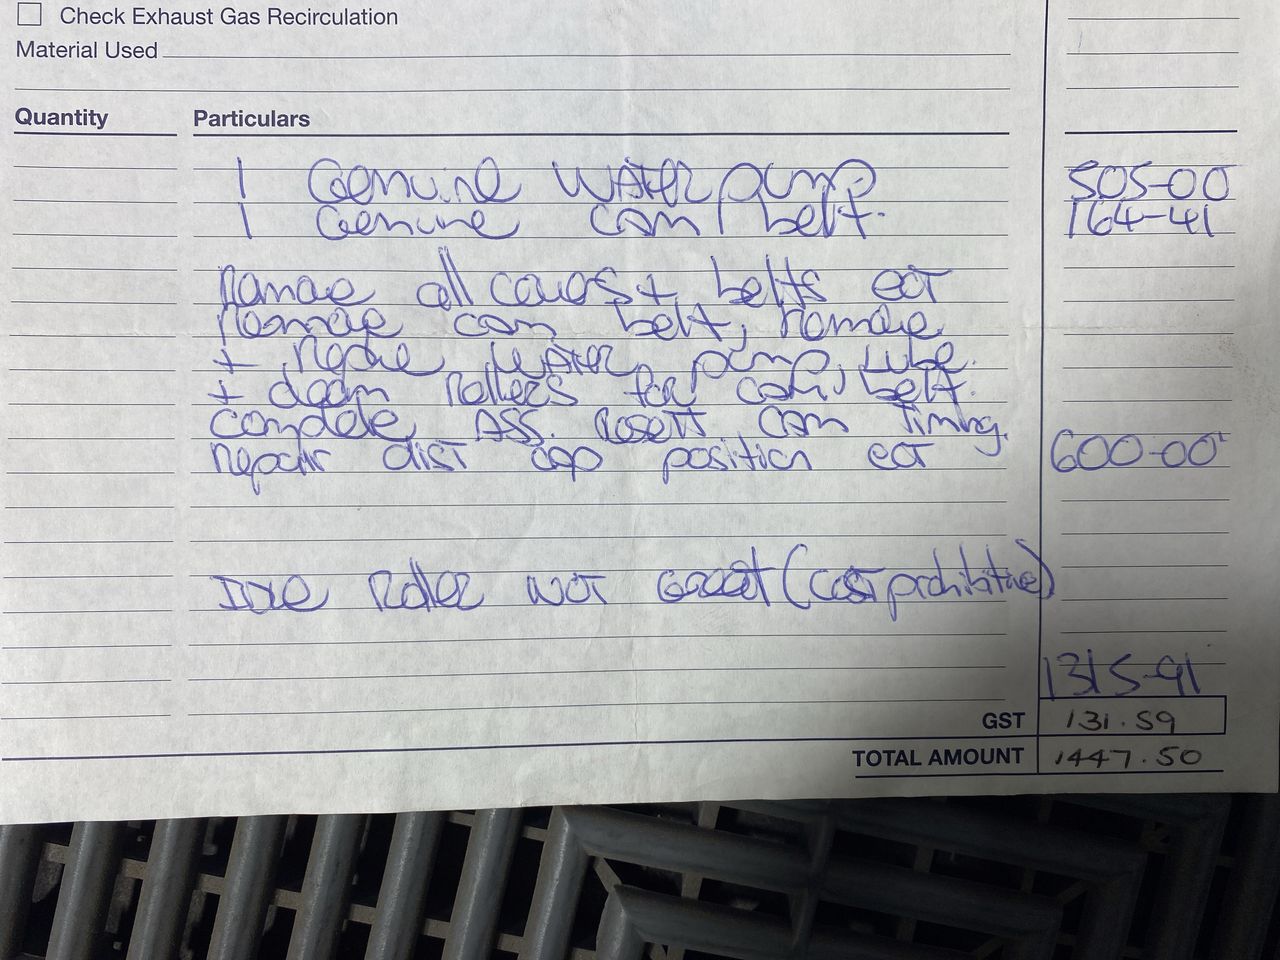 Check Exhaust Gas Recirculation
Material Used
Quantity Particulars
1 Genuine Water pump 505-00
1 Genuine cam belt. 164-41
Remove all covers + belts ect
Remove cam belt, Remove
+ Replace Water pump, Lube
+ clean Rollers for cam belt.
complete ASS. Resett cam Timing.
repair dist cap position ect 600-00
Idle Roller not Great (cost prohibitive)
1315-91
GST 131.59
TOTAL AMOUNT 1447.50